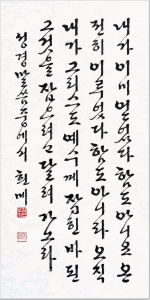 내가 이미 얻었다 함도 아니요 온
전히 이루었다 함도 아니라 오직
내가 그리스도 예수께 잡힌 바 된
그것을 잡으려고 달려가노라
성경말씀 중에서